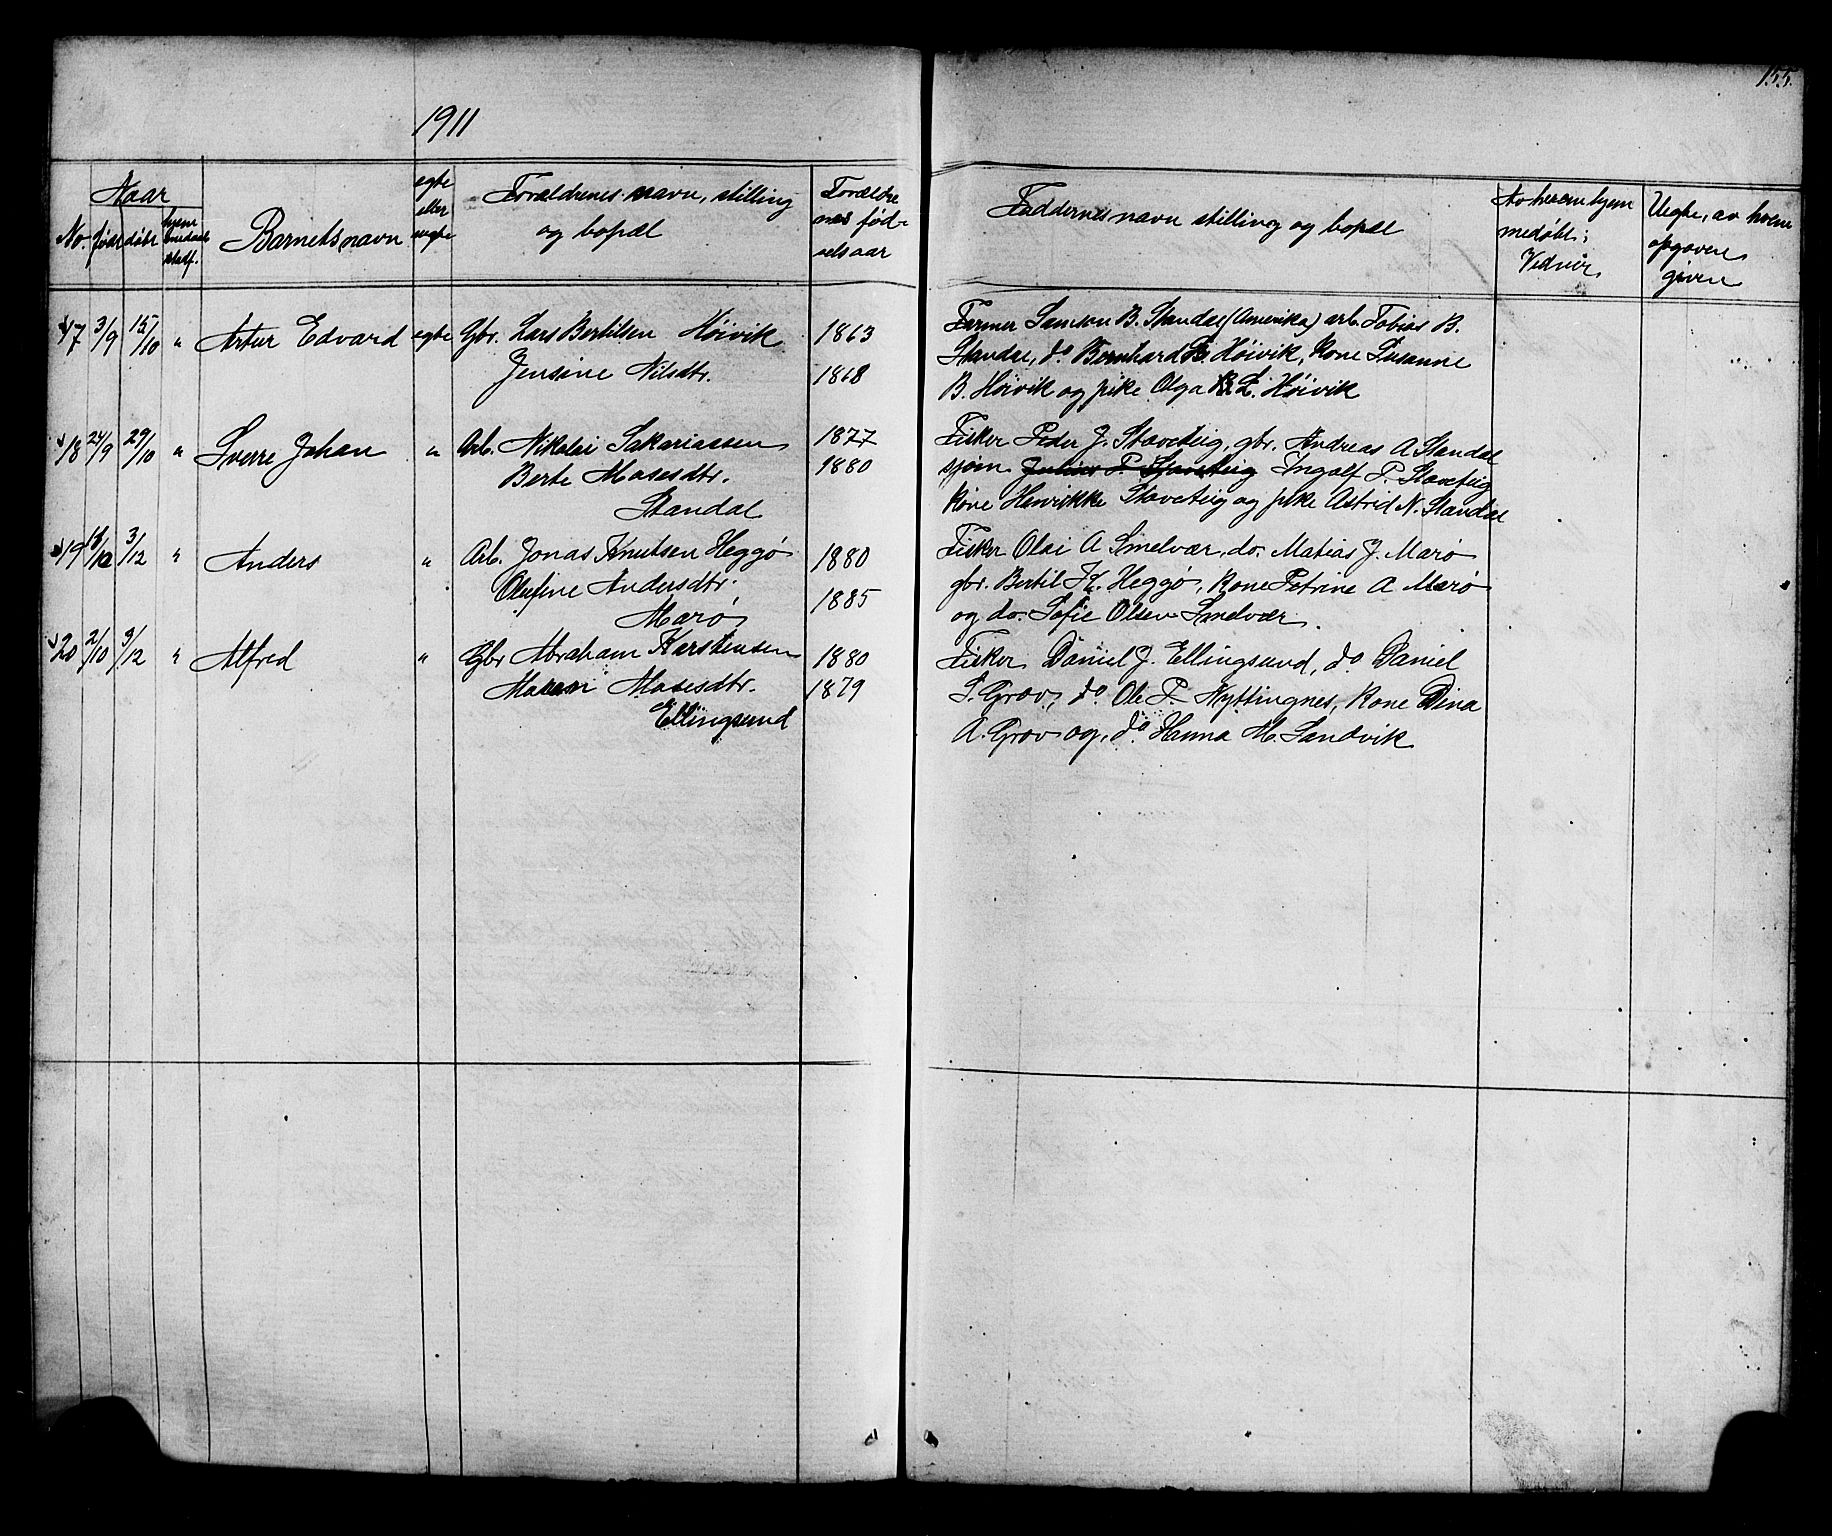 155.
1911
Naar
No. født døbt hjem
Barnets navn
egte eller uegte
Forældrenes navn, stilling
og bopæl
Forældre
nes fød-
selsaar
Faddernes navn stilling og bopæl
Av hvem hjem
medøbt;
Uegte, av hvem
opgaven
given
17 3/9 15/10 " Artur Edvard egte Gbr. Lars Bertilsen Høivik 1863
Jensine Nilsdtr. 1868
Farmer Samson B. Standal (Amerika) arb. Tobias B.
Standal, do Bernhard L. Høivik, kone Susanne
B. Høivik og pike Olga L. Høivik
18 24/9 29/10 " Sverre Johan " Arb. Nikolai Sakariassen 1877
Berte Mosesdtr. 1880
Standal
Fisker Peder J. Staveteig, gbr. Andreas A Standal
sjøm Julius P. Staveteig Ingolf P. Staveteig
kone Henrikke Staveteig og pike Astrid N. Standal
19 3/12 " Anders " Arb. Jonas Knutsen Heggø 1880
Olufine Andersdtr. 1885
Marø
Fisker Olai A Smelvær, do. Matias J. Marø
gbr. Bertil K. Heggø, kone Petrine A Marø
og do. Sofie Olsen Smelvær.
20 2/10 3/12 " Alfred " Gbr Abraham Karstensen 1880
Mosesdtr. 1879
Ellingsund
Fisker Daniel J. Ellingsund, do Daniel
S. Grov, do Ole P. Nyttingnes, kone Dina
A. Grov og, do Hanna M. Sandvik